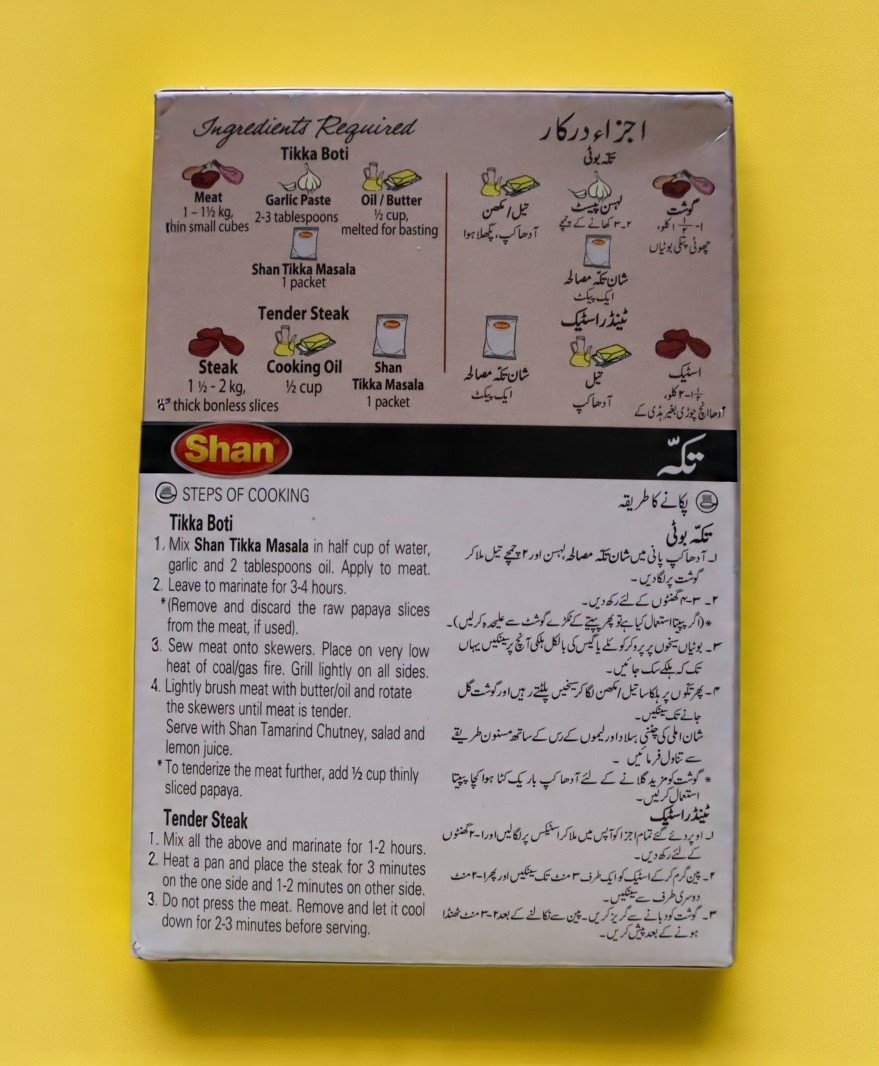 Ingredients Required
Tikka Boti
Meat
1 – 1½ kg,
thin small cubes
Garlic Paste
2-3 tablespoons
Oil / Butter
½ cup,
melted for basting
Shan
Shan Tikka Masala
1 packet
Tender Steak
Steak
1 ½ - 2 kg,
thick bonless slices
Cooking Oil
½ cup
Shan
Shan
Tikka Masala
1 packet
اجزاء درکار
تکّہ بوٹی
گوشت
۱- ۱ ½ کلو،
چھوٹی پتلی بوٹیاں
لہسن پیسٹ
۲-۳ کھانے کے چمچے
تیل / مکھن
آدھا کپ، پگھلا ہوا
Shan
شان تکّہ مصالحہ
ایک پیکٹ
ٹینڈر اسٹیک
اسٹیک
½ ۱-۲ کلو،
آدھا انچ چوڑی بغیر ہڈی کے
تیل
آدھا کپ
Shan
شان تکّہ مصالحہ
ایک پیکٹ
Shan
تکّہ
STEPS OF COOKING
Tikka Boti
1. Mix Shan Tikka Masala in half cup of water,
garlic and 2 tablespoons oil. Apply to meat.
2. Leave to marinate for 3-4 hours.
*(Remove and discard the raw papaya slices
from the meat, if used).
3. Sew meat onto skewers. Place on very low
heat of coal/gas fire. Grill lightly on all sides.
4. Lightly brush meat with butter/oil and rotate
the skewers until meat is tender.
Serve with Shan Tamarind Chutney, salad and
lemon juice.
* To tenderize the meat further, add ½ cup thinly
sliced papaya.
Tender Steak
1. Mix all the above and marinate for 1-2 hours.
2. Heat a pan and place the steak for 3 minutes
on the one side and 1-2 minutes on other side.
3. Do not press the meat. Remove and let it cool
down for 2-3 minutes before serving.
پکانے کا طریقہ
تکّہ بوٹی
۱۔ آدھا کپ پانی میں شان تکّہ مصالحہ، لہسن اور ۲ چمچے تیل ملا کر
گوشت پر لگادیں۔
۲۔ ۳-۴ گھنٹوں کے لئے رکھ دیں۔
*(اگر پپیتا استعمال کیا ہے تو پھر پپیتے کے ٹکڑے گوشت سے علیحدہ کرلیں)۔
۳۔ بوٹیاں سیخوں پر پرو کر کوئلے یا گیس کی بالکل ہلکی آنچ پر سینکیں یہاں
تک کہ ہلکے سک جائیں۔
۴۔ پھر تکّوں پر ہلکا سا تیل / مکھن لگا کر سیخیں پلٹتے رہیں اور گوشت گل
جانے تک سینکیں۔
شان املی کی چٹنی، سلاد اور لیموں کے رس کے ساتھ مسنون طریقے
سے تناول فرمائیں۔
* گوشت کو مزید گلانے کے لئے آدھا کپ باریک کٹا ہوا کچا پپیتا
استعمال کرلیں۔
ٹینڈر اسٹیک
۱۔ اوپر دئے گئے تمام اجزا کو آپس میں ملا کر اسٹیکس پر لگالیں اور ۱-۲ گھنٹوں
کے لئے رکھ دیں۔
۲۔ پین گرم کر کے اسٹیک کو ایک طرف ۳ منٹ تک سینکیں اور پھر ۱-۲ منٹ
دوسری طرف سے سینکیں۔
۳۔ گوشت کو دبانے سے گریز کریں۔ پین سے نکالنے کے بعد ۲-۳ منٹ ٹھنڈا
ہونے کے بعد پیش کریں۔